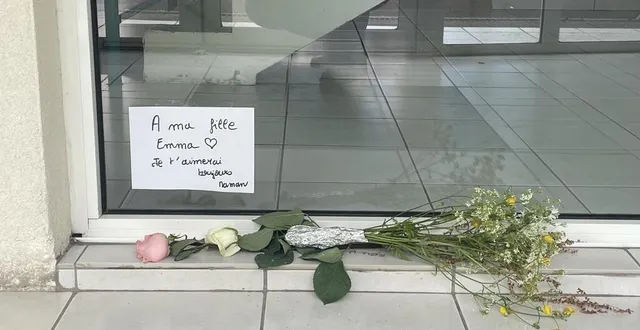 A ma fille
Emma ♡
Je t'aimerai
toujours
maman